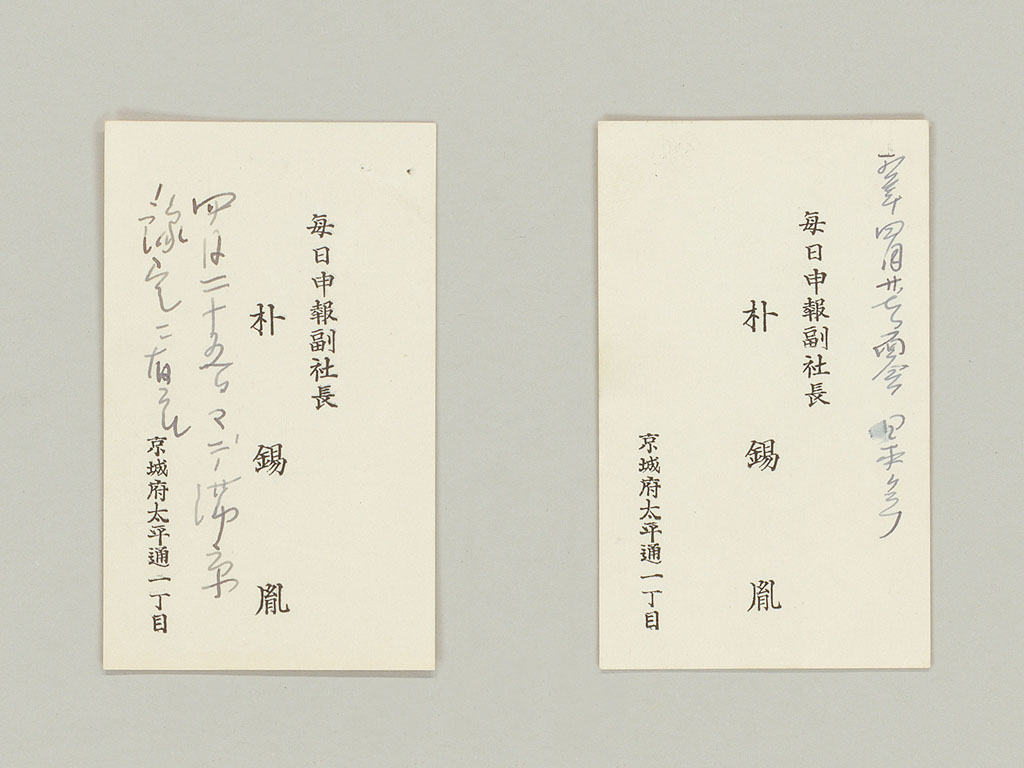 每日申報副社長
朴錫胤
四月二十五日マデ滞京
豫定ニ有之
京城府太平通一丁目
四月廿
面会
每日申報副社長
朴錫胤
京城府太平通一丁目